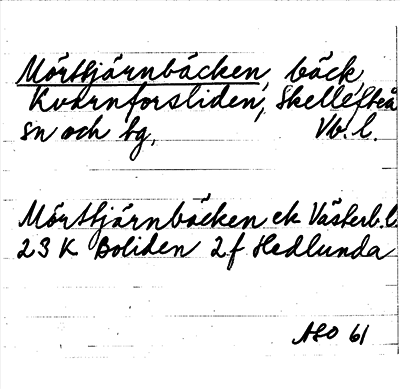 Mörttjärnbäcken, bäck,
Kvarnforsliden, Skellefteå
sn och tg, Vb. l.
Mörttjärnbäcken ek Västerb. l
23 K Boliden 2f Hedlunda
ASO 61